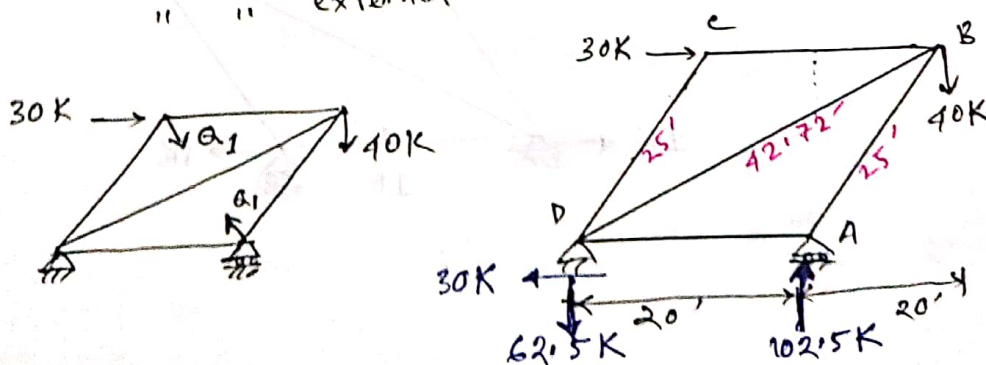 " " external
30K
Q1
40K
Q1
30K
C
B
40K
25'
42.72'
25'
D
A
30K
20'
20'
62.5K
102.5K